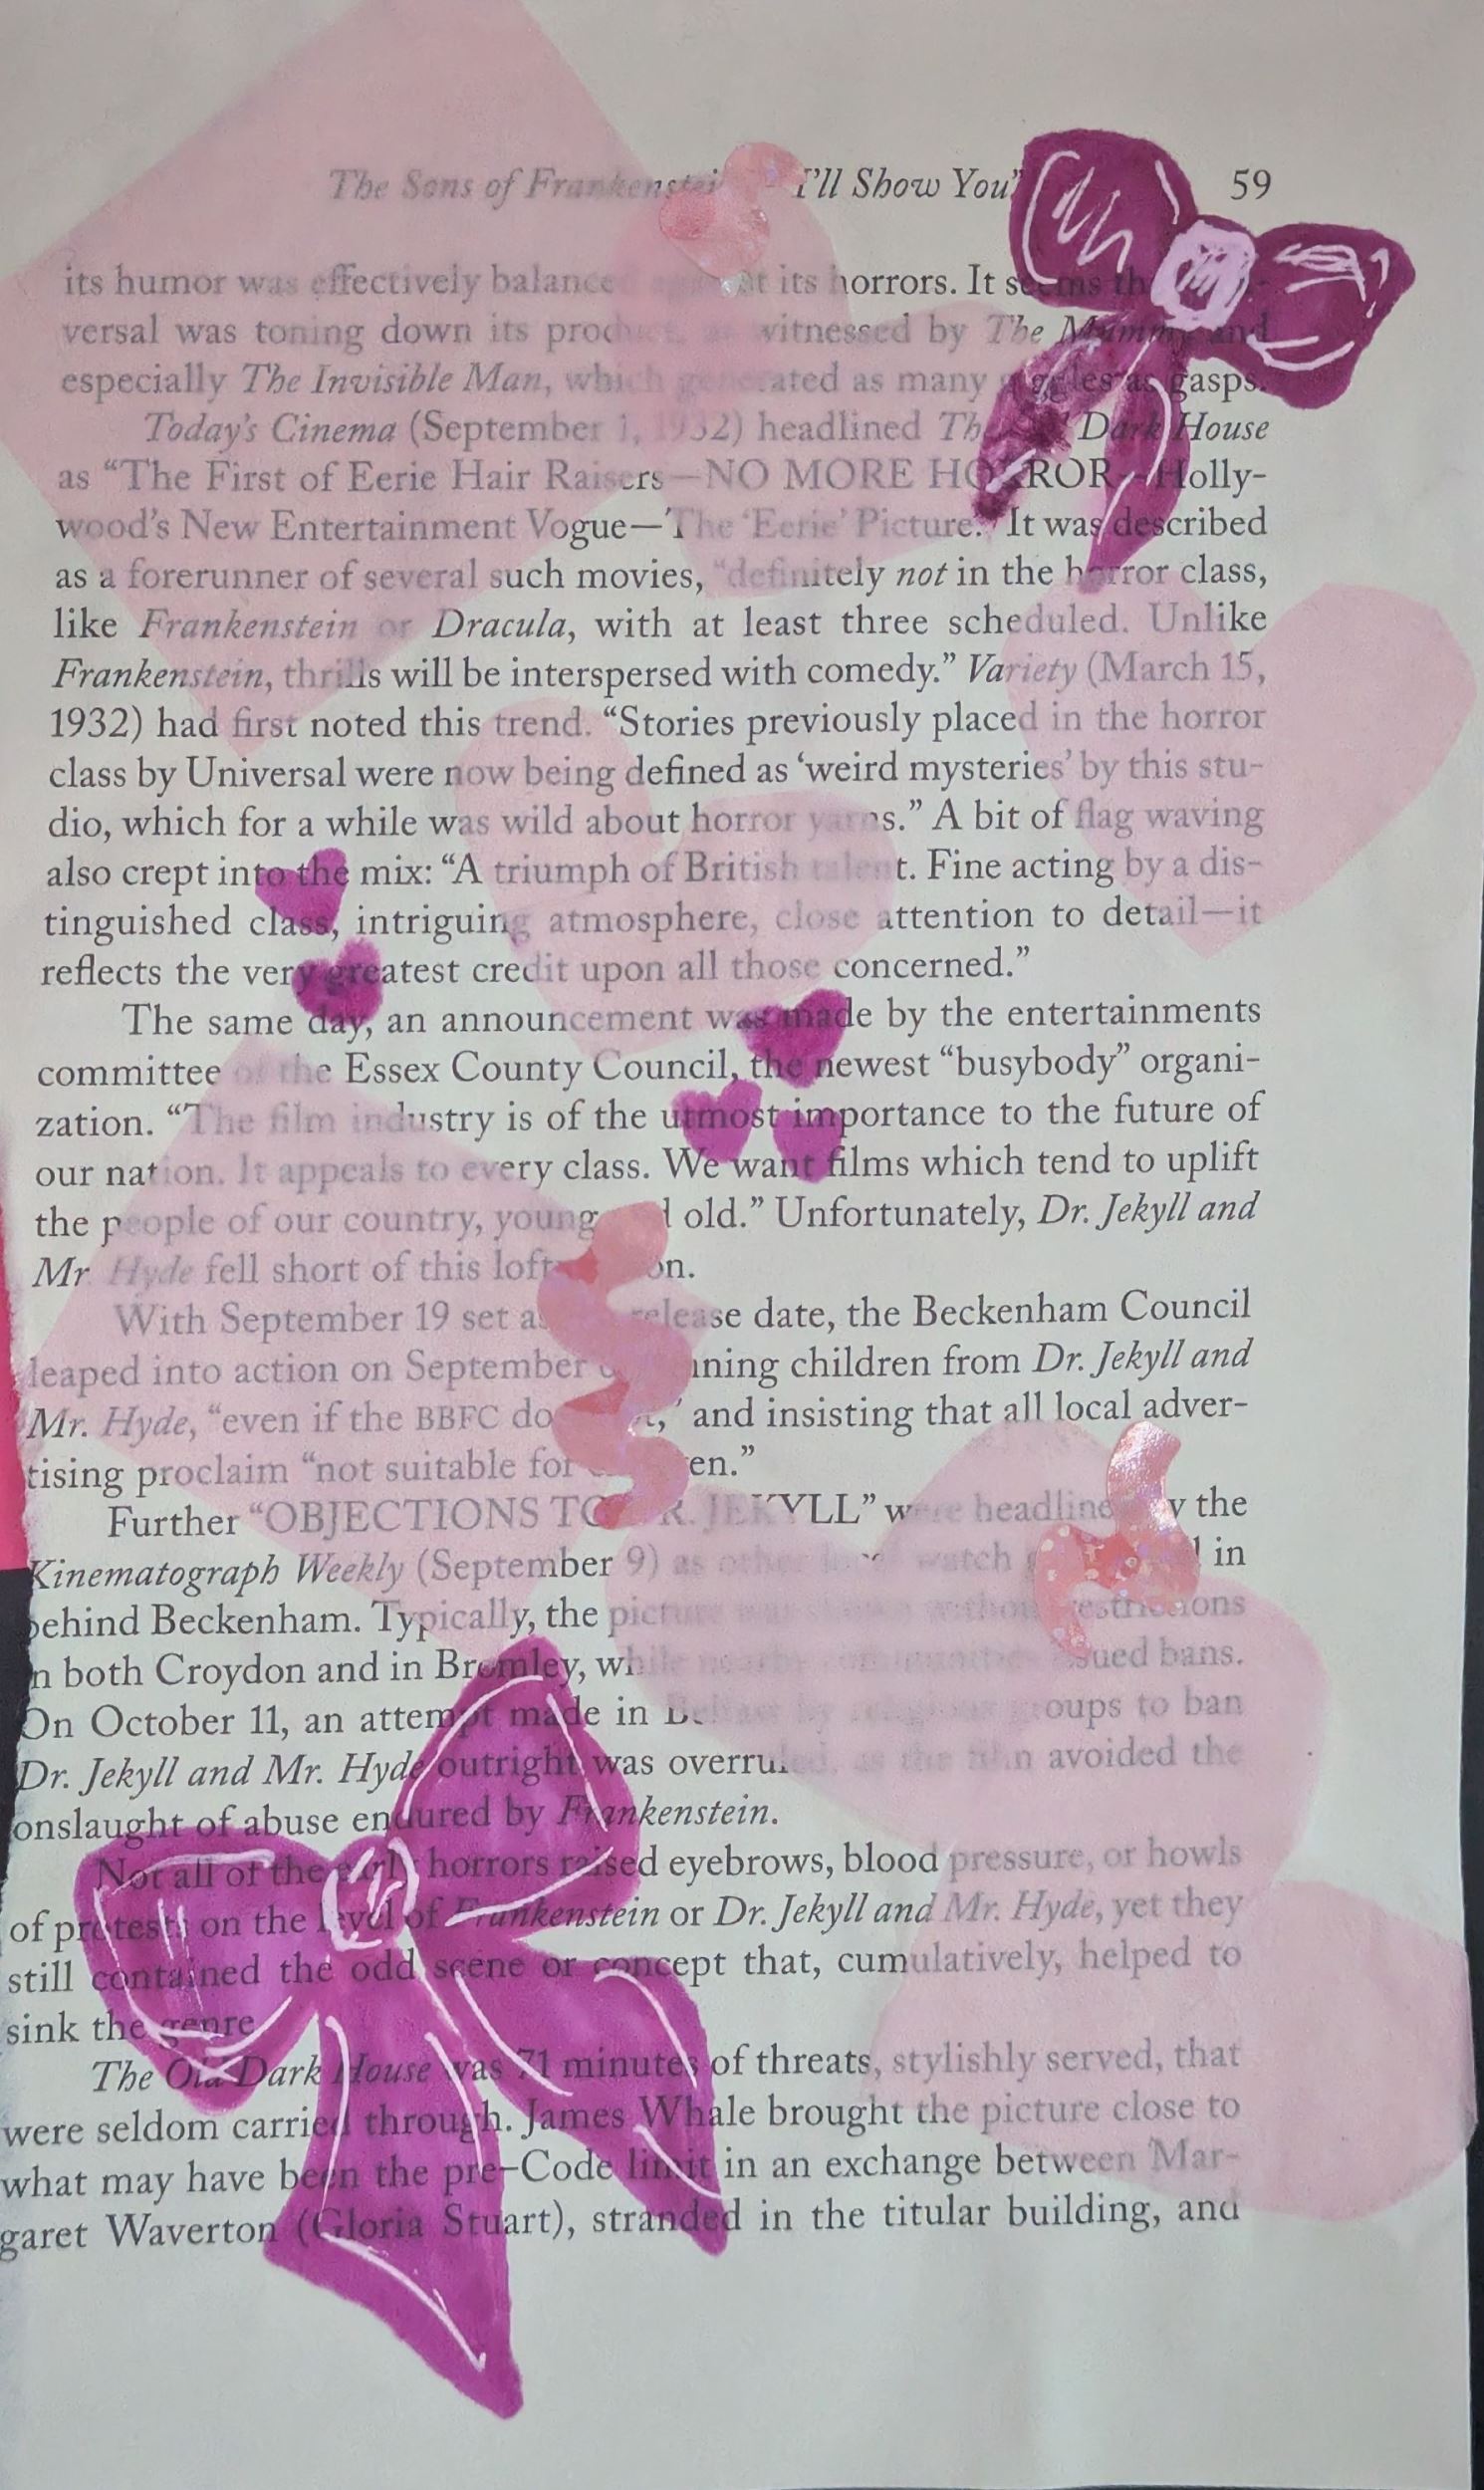 The Sons of Frankenstein - I'll Show You" 59
its humor was effectively balanced against its horrors. It seems th
versal was toning down its product, as witnessed by The Mummy and
especially The Invisible Man, which generated as many giggles as gasps.
Today's Cinema (September 1, 1932) headlined The Old Dark House
as “The First of Eerie Hair Raisers—NO MORE HORROR—Holly-
wood's New Entertainment Vogue—The ‘Eerie’ Picture.” It was described
as a forerunner of several such movies, “definitely not in the horror class,
like Frankenstein or Dracula, with at least three scheduled. Unlike
Frankenstein, thrills will be interspersed with comedy.” Variety (March 15,
1932) had first noted this trend. “Stories previously placed in the horror
class by Universal were now being defined as ‘weird mysteries’ by this stu-
dio, which for a while was wild about horror yarns.” A bit of flag waving
also crept into the mix: “A triumph of British talent. Fine acting by a dis-
tinguished class, intriguing atmosphere, close attention to detail—it
reflects the very greatest credit upon all those concerned.”
The same day, an announcement was made by the entertainments
committee of the Essex County Council, the newest “busybody” organi-
zation. “The film industry is of the utmost importance to the future of
our nation. It appeals to every class. We want films which tend to uplift
the people of our country, young old.” Unfortunately, Dr. Jekyll and
Mr Hyde fell short of this
With September 19 set as release date, the Beckenham Council
leaped into action on September children from Dr. Jekyll and
Mr. Hyde, “even if the BBFC and insisting that all local adver-
tising proclaim “not suitable for
Further “OBJECTIONS TO DR. JEKYLL” were headlined by the
Kinematograph Weekly (September 9) as other local watch in
behind Beckenham. Typically, the picture was shown without restrictions
in both Croydon and in Bromley, while nearby communities issued bans.
On October 11, an attempt made in Belfast by religious groups to ban
Dr. Jekyll and Mr. Hyde outright was overruled, as the film avoided the
onslaught of abuse endured by Frankenstein.
Not all of the early horrors raised eyebrows, blood pressure, or howls
of protests on the level of Frankenstein or Dr. Jekyll and Mr. Hyde, yet they
still contained the odd scene or concept that, cumulatively, helped to
sink the genre
The Old Dark House was 71 minutes of threats, stylishly served, that
were seldom carried through. James Whale brought the picture close to
what may have been the pre–Code limit in an exchange between Mar-
garet Waverton (Gloria Stuart), stranded in the titular building, and